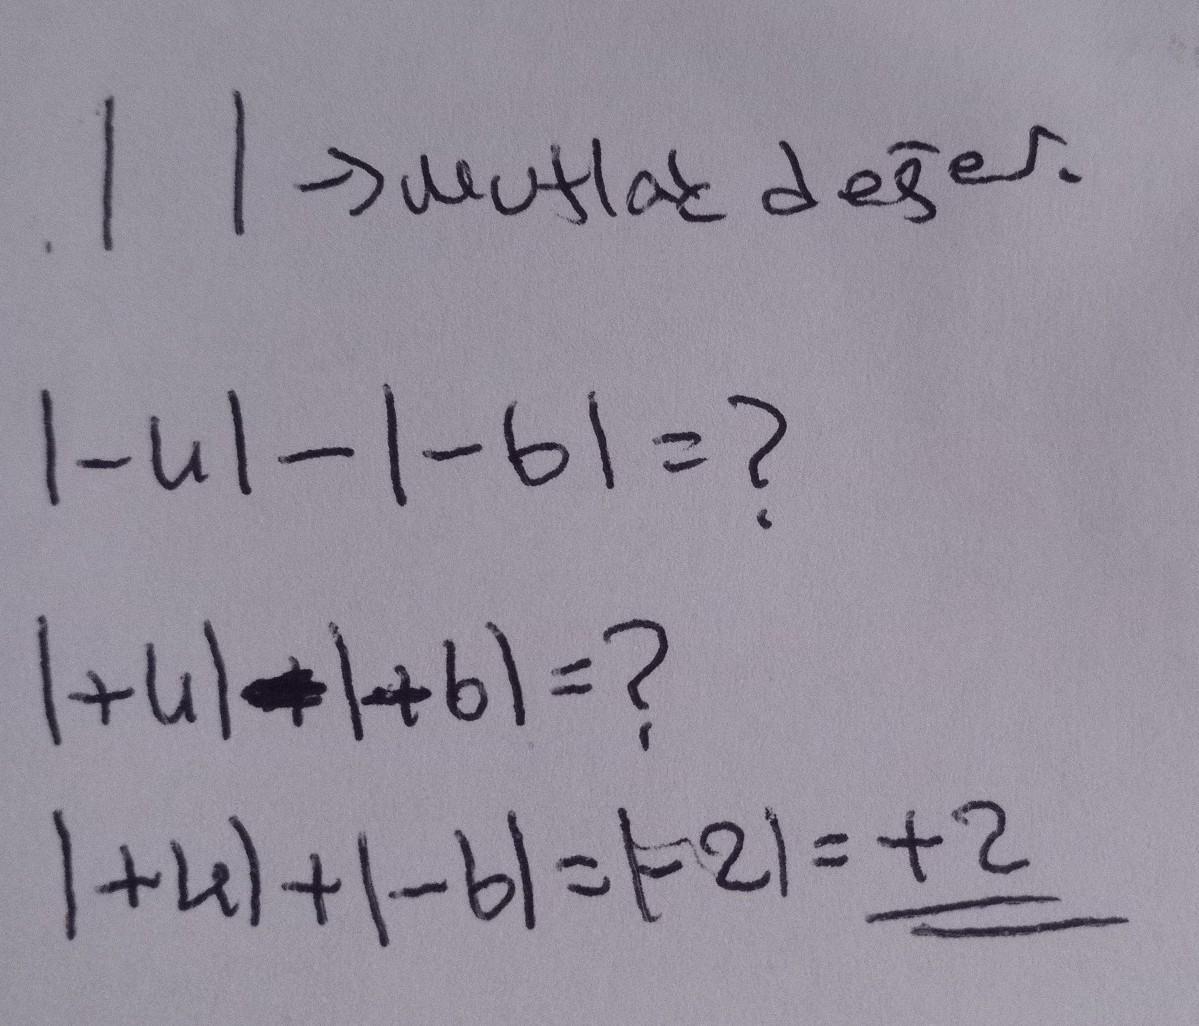 | | → mutlak değer.
|-4| - |-6| = ?
|+4| + |+6| = ?
|+4| + |-6| = |-2| = +2